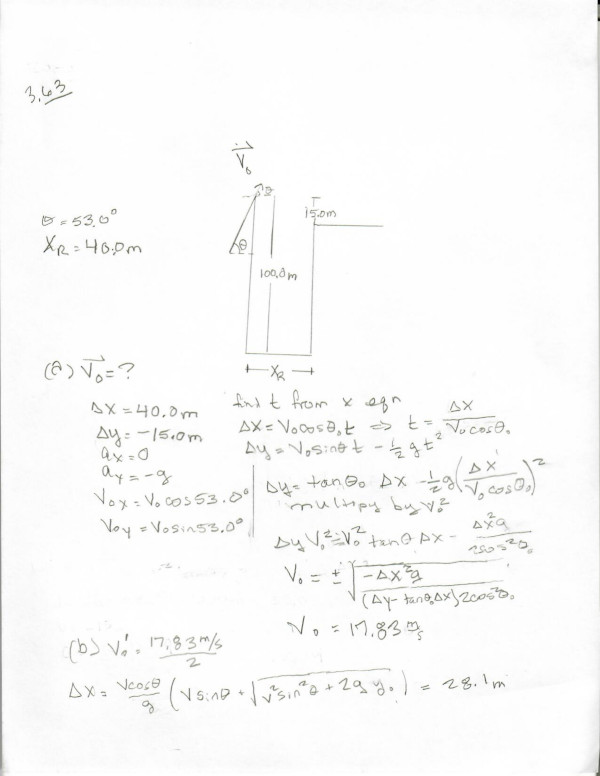 3.63
V₀
θ
15.0m
θ = 53.0°
X_R = 40.0m
θ
100.0m
X_R
(a) V₀ = ?
ΔX = 40.0m
Δy = -15.0m
a_x = 0
a_y = -g
V₀x = V₀ cos 53.0°
V₀y = V₀ sin 53.0°
find t from x eqn
ΔX = V₀cosθ₀t ⇒ t = ΔX / V₀cosθ₀
Δy = V₀sinθt - ½gt²
Δy = tanθ₀ ΔX - ½g(ΔX / V₀cosθ₀)²
multipy by V₀²
ΔyV₀² = V₀² tanθ ΔX - ΔX²g / 2cos²θ₀
V₀ = ±√(-ΔX²g / (Δy - tanθ₀ΔX)2cos²θ₀)
V₀ = 17.83 m/s
(b) V₀' = 17.83 m/s / 2
ΔX = Vcosθ / g (Vsinθ + √(V²sin²θ + 2gy₀)) = 28.1m